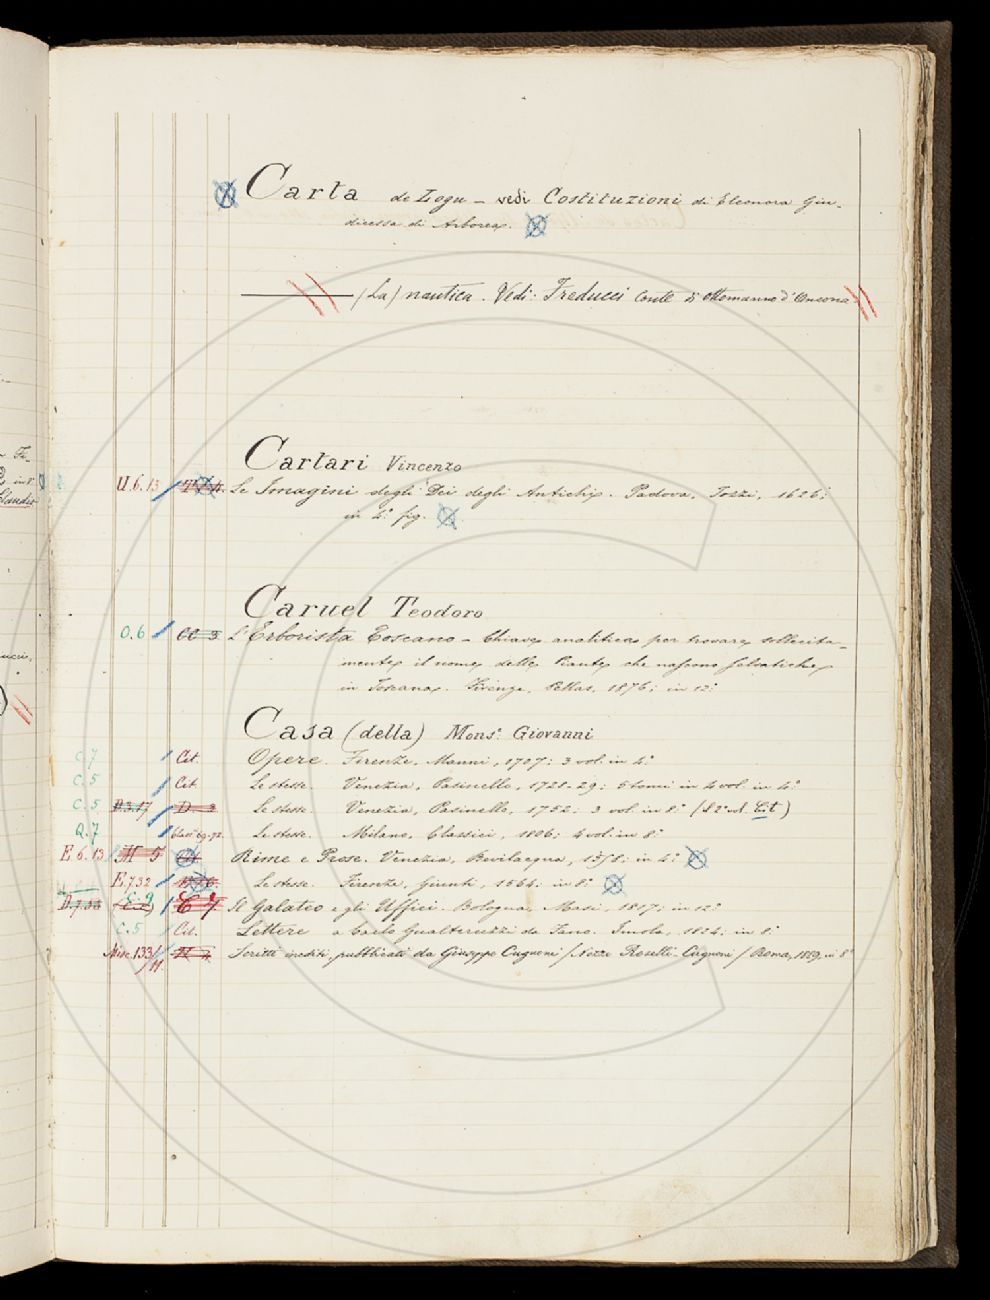 Carta de Logu – vedi Costituzioni di Eleonora Giu-
dicessa di Arborea.
(La) nautica. Vedi: Freducci Conte di Ottomanno d'Ancona
Cartari Vincenzo
U.6.13 Le Imagini degli Dei degli Antichi. Padova, Tozzi, 1626;
in 4.° fig.
Caruel Teodoro
O.6 CC 3 L'Erborista Toscano – Chiave analitica per trovare sollecita-
mente il nome delle Piante che nascono salvatiche
in Toscana. Firenze, Pellas, 1876; in 12.°
Casa (della) Mons.r Giovanni
C.7 Cit. Opere. Firenze, Manni, 1707; 3 vol. in 4.°
C.5 Cit. Le stesse. Venezia, Pasinello, 1728-29; 5 tomi in 4 vol. in 4.°
C.5 D.3.17 D 3 Le stesse. Venezia, Pasinello, 1752; 3 vol. in 8.° (Il 2.° vol. Cit.)
Q.7 Class. 69-72 Le stesse. Milano, Classici, 1806; 4 vol. in 8.°
E.6.13 H 5 Rime e Prose. Venezia, Bevilacqua, in 4.°
E.7.32 Le stesse. Firenze, Giunti, 1564; in 8.°
C 7 Il Galateo e gli Uffici. Bologna, Masi, 1817; in 12.°
C.5 Cit. Lettere a Carlo Gualteruzzi da Fano. Imola, 1824; in 8.°
Misc. 133/11 Scritti inediti, pubblicati da Giuseppe Cugnoni (Nozze Roselli-Cugnoni) Roma, 1889, in 8.°
in 8.°